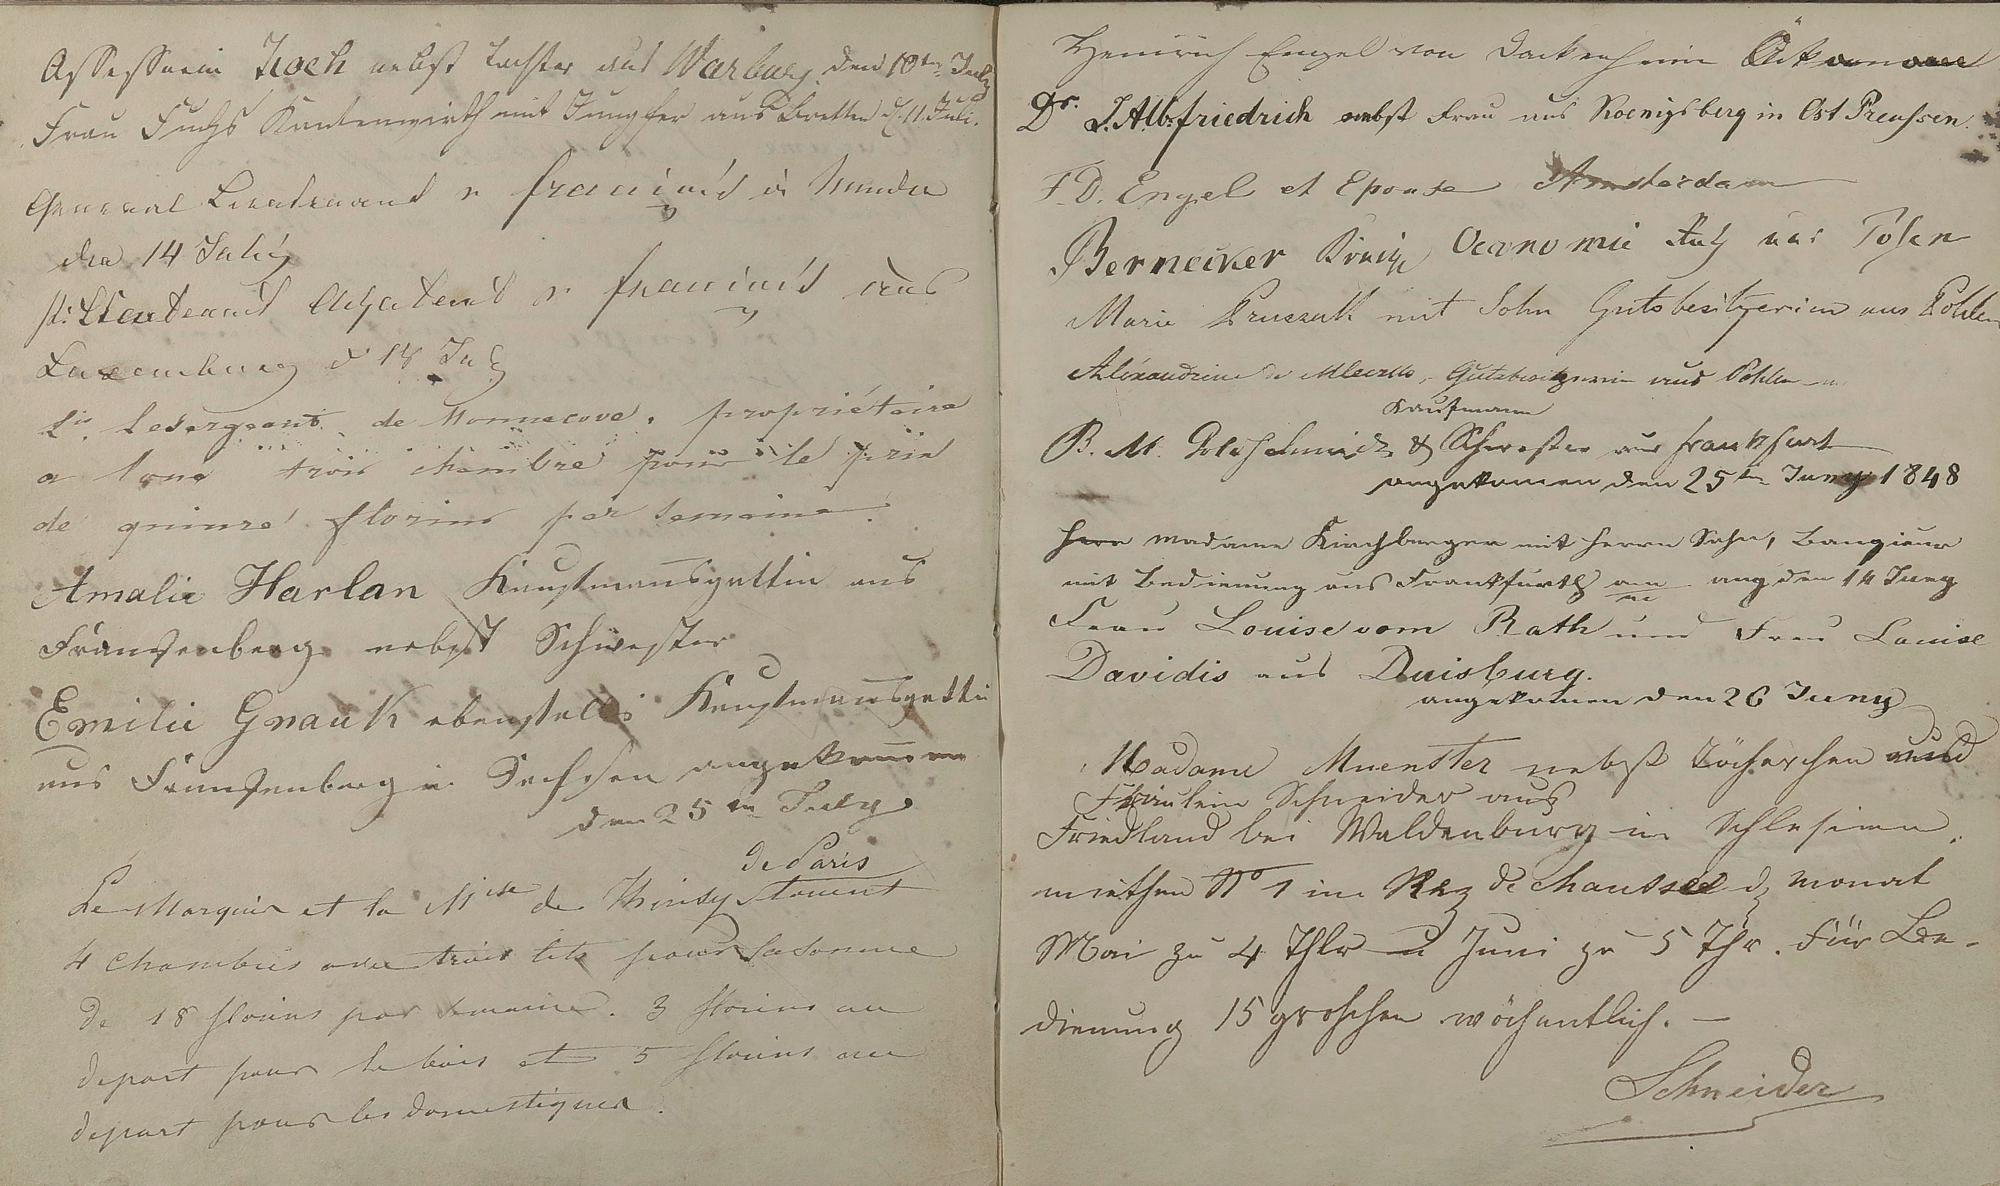 Assessorin Koch nebst Tochter aus Warburg den 10ten July
Frau Fuchs Kantenwirth mit Jungfer aus Bretten d. 11 Juli.
General Lieutenant v
den 14 July
Lieutenant Adjutant v aus
Luxemburg d 18 July
Lesergeant de Monnecove, propriétaire
a loué trois chambre pour le prix
de quinze florins par semaine.
Amalie Harlan Kaufmansgattin aus
Frankenberg nebst Schwester
Emilie Gnauk ebenfalls Kaufmansgattin
aus Frankenberg in Sachsen angekommen
den 25ten July
de Paris
Le Marquis et la Mise de louent
4 chambres avec trois lits pour la somme
de 18 florins par semaine. 3 florins au
depart pour le bois et 5 florins au
depart pour les domestiques.
Heinrich Engel von Dackenheim Ökonom
Dr. J. Alb. friedrich nebst Frau aus Koenigsberg in Ost Preussen.
F. D. Engel et Epouse Amsterdam
Bernecker Königl Oeconomie aus Posen
Marie Pruszak mit Sohn Gutsbesitzerin aus Pohlen
Alexandrine de Gutsbesitzerin aus Pohlen
Kaufmann
B. M. Goldschmidt & Schwester aus frankfurt
angekomen den 25ten Juny 1848
Herr Madame Kirchberger mit Herrn Sohn, Banqieur
mit Bedienung aus Frankfurth am ang den 14 Juny
m
Frau Louise vom Rath und Frau Louise
Davidis aus Duisburg.
angekomen den 26 Juny
Madame Muenster nebst Töchterchen und
Fräulein Schneider aus
Friedland bei Waldenburg in Schlesien,
miethen No 1 im Rez de chaussée d. monat
Mai zu 4 Thlr u Juni zu 5 Thr. Für Be-
dienung 15 groschen wöchentlich. —
Schneider